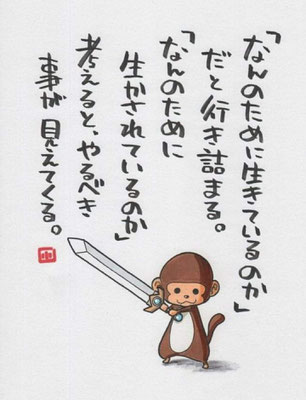 「なんのために生きているのか」
だと行き詰まる。
「なんのために
生かされているのか」
考えると、やるべき
事が見えてくる。